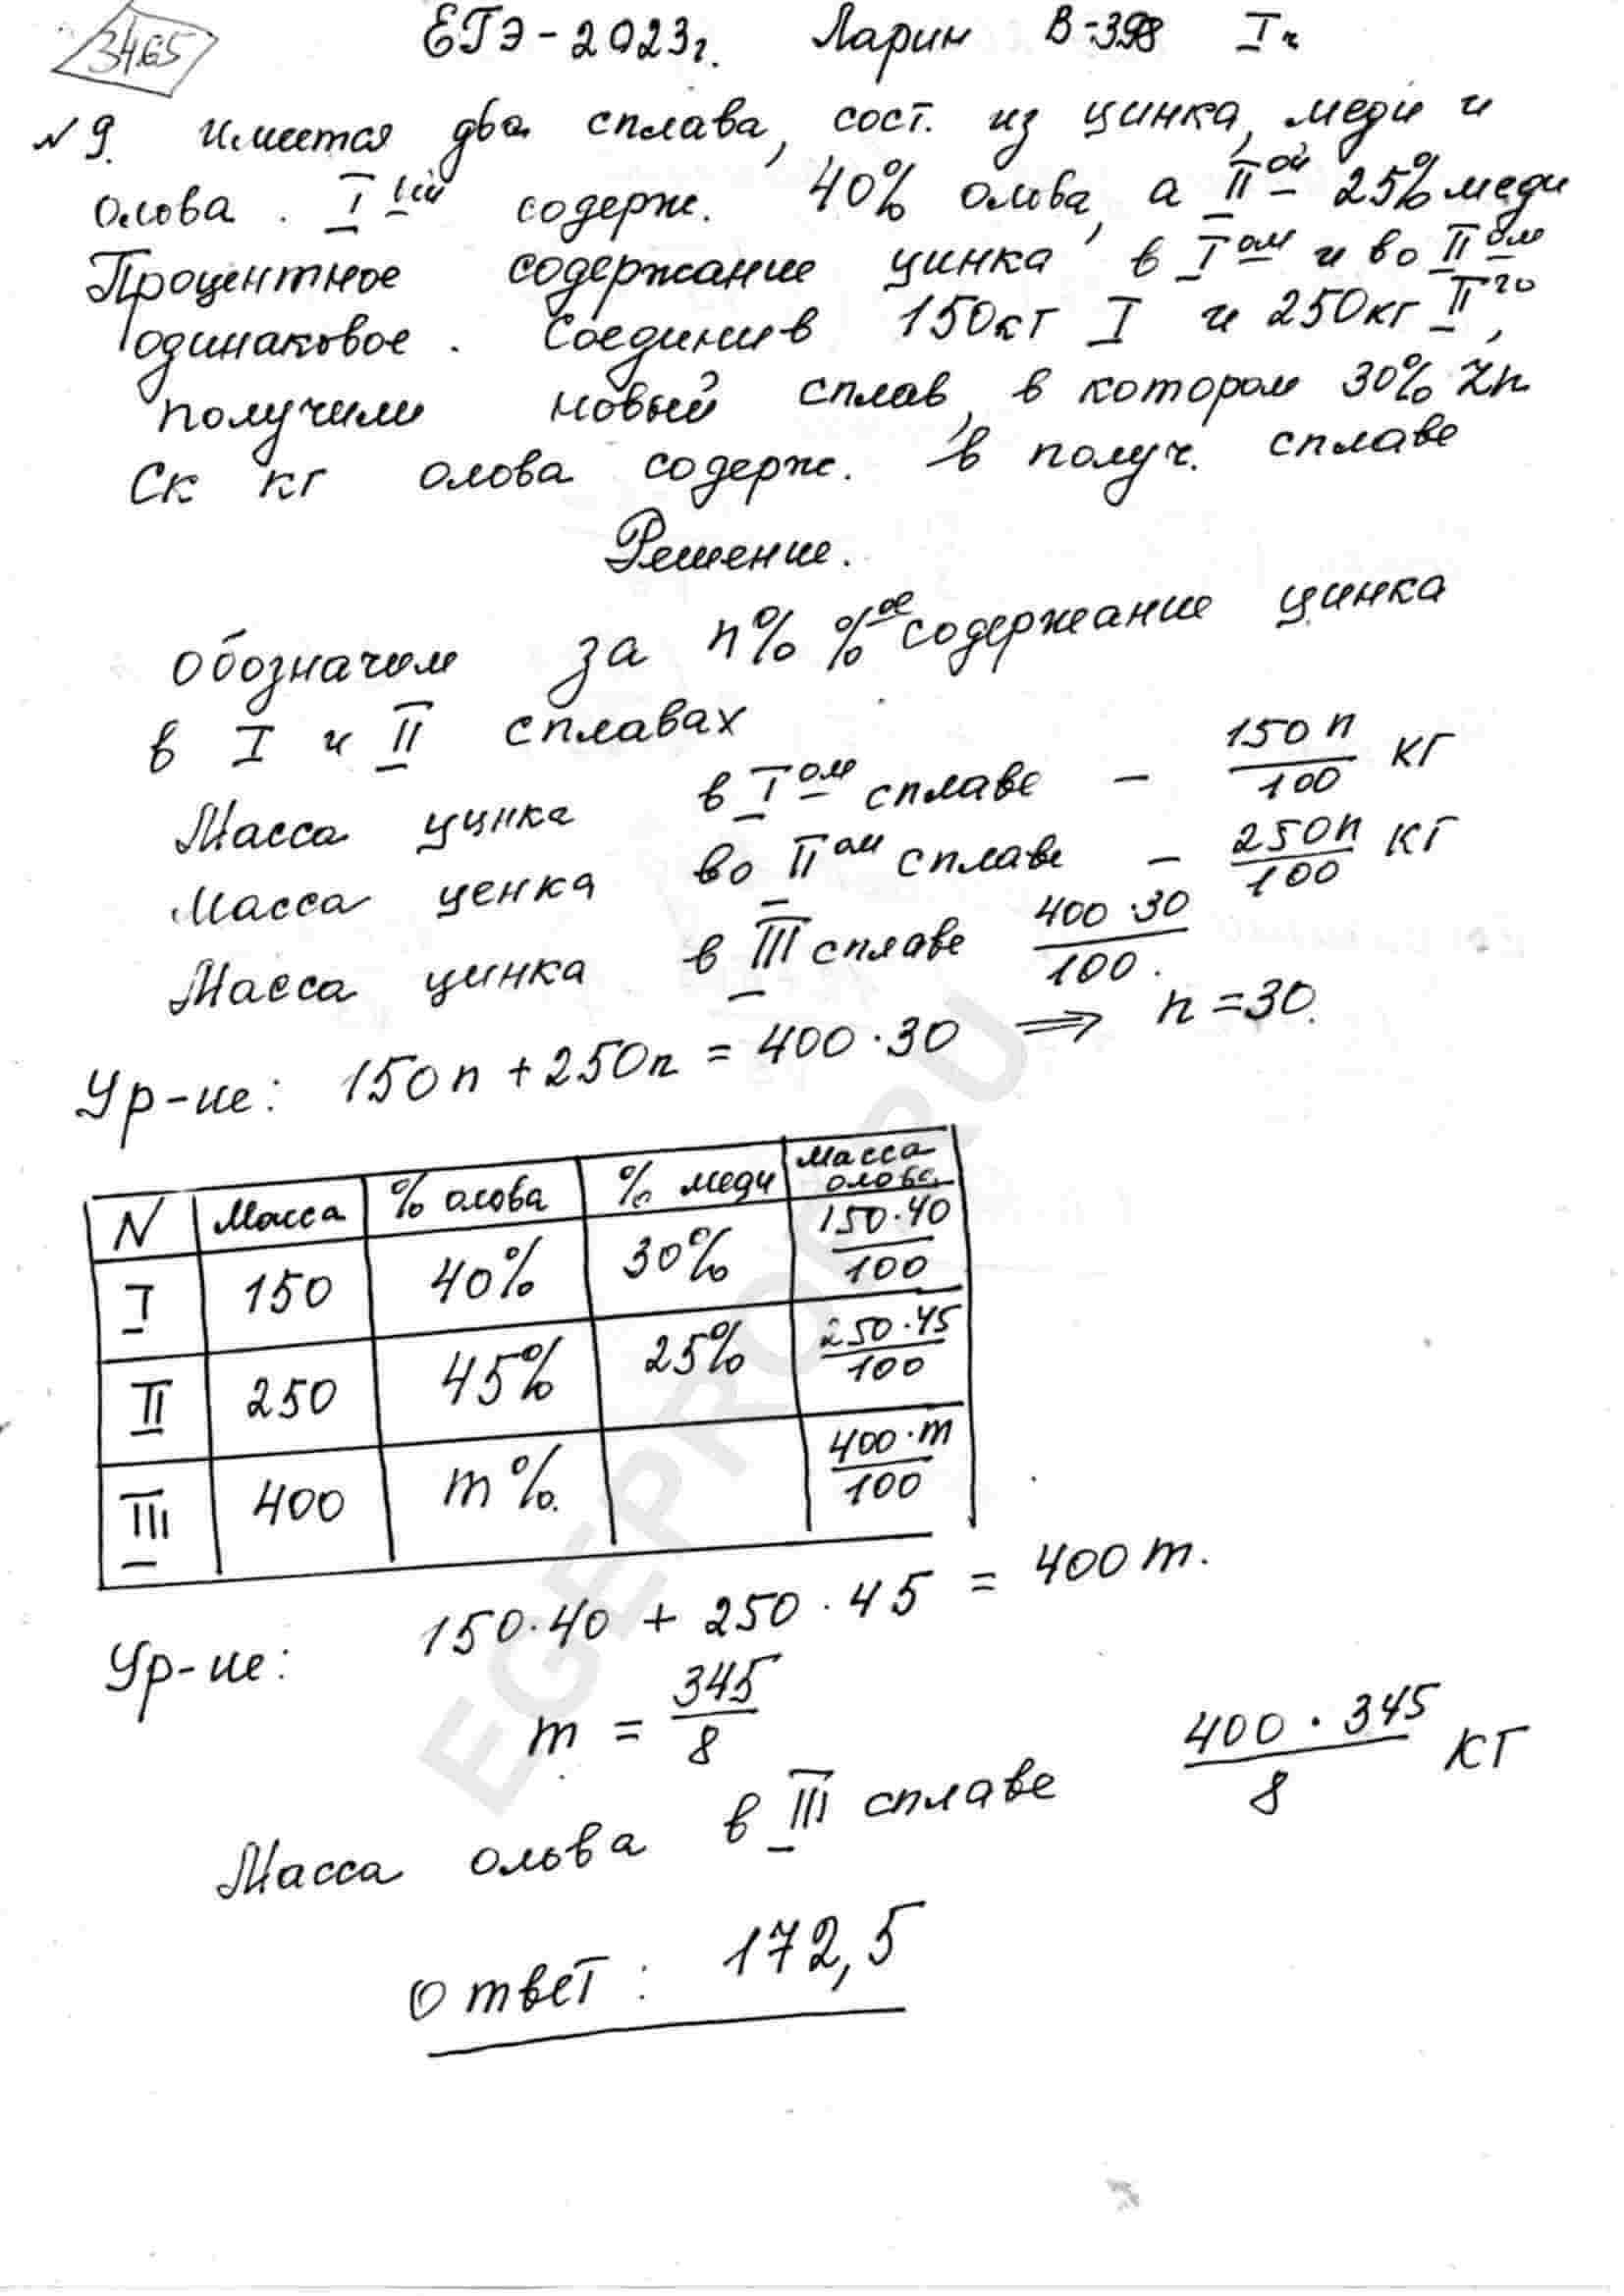 3465
ЕГЭ-2023г. Ларин В-398 Iч
№9. Имеется два сплава, сост. из цинка, меди и
олова. I ый содерж. 40% олова, а II ой 25% меди
Процентное содержание цинка в I ом и во II ом
одинаковое. Соединив 150кг I и 250кг II го,
получили новый сплав, в котором 30% Zn
Ск кг олова содерж. в получ. сплаве
Решение.
Обозначим за n% %ое содержание цинка
в I и II сплавах
Масса цинка в I ом сплаве - 150n/100 кг
Масса ценка во II ом сплаве - 250n/100 кг
Масса цинка в III сплаве 400·30/100.
Ур-ие: 150n + 250n = 400·30 ⟹ n = 30.
N | Масса | % олова | % меди | Масса олова
I | 150 | 40% | 30% | 150·40/100
II | 250 | 45% | 25% | 250·45/100
III | 400 | m%. | | 400·m/100
Ур-ие: 150·40 + 250·45 = 400m.
m = 345/8
Масса олова в III сплаве 400·345/8 кг
Ответ: 172,5
EGEPROF.RU